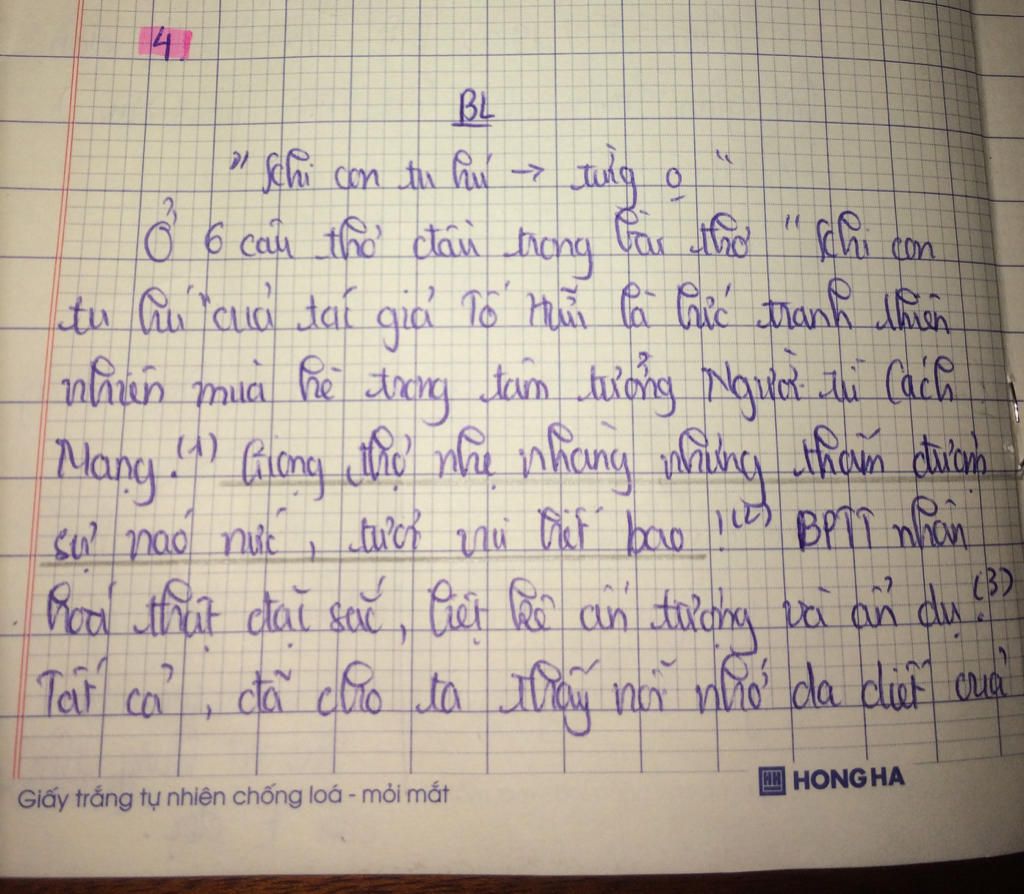 4
BL
" Khi con tu hú → từng o "
Ở 6 câu thơ đầu trong bài thơ " Khi con
tu hú " của tác giả Tố Hữu là bức tranh thiên
nhiên mùa hè trong tâm tưởng Người tù Cách
Mạng.(1) Giọng thơ nhẹ nhàng nhưng thấm đượm
sự náo nức, tươi vui biết bao !(2) BPTT nhân
hoá thật đặc sắc, liệt kê ấn tượng và ẩn dụ.(3)
Tất cả, đã cho ta thấy nỗi nhớ da diết của
Giấy trắng tự nhiên chống loá - mỏi mắt
HH HONG HA